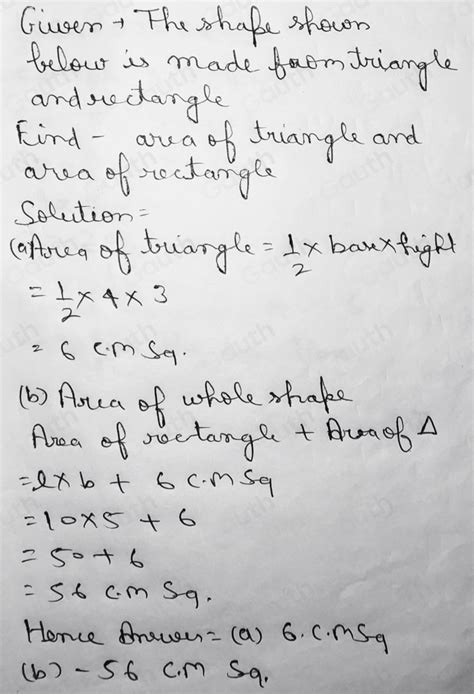 Given → The shape shown
below is made from triangle
and rectangle
Find - area of triangle and
area of rectangle
Solution =
(a) Area of triangle = 1/2 × base × hight
= 1/2 × 4 × 3
= 6 c.m Sq.
(b) Area of whole shape
Area of rectangle + Area of Δ
= l × b + 6 c.m Sq
= 10 × 5 + 6
= 50 + 6
= 56 c.m Sq.
Hence Answer = (a) 6. c.m Sq
(b) - 56 c.m Sq.